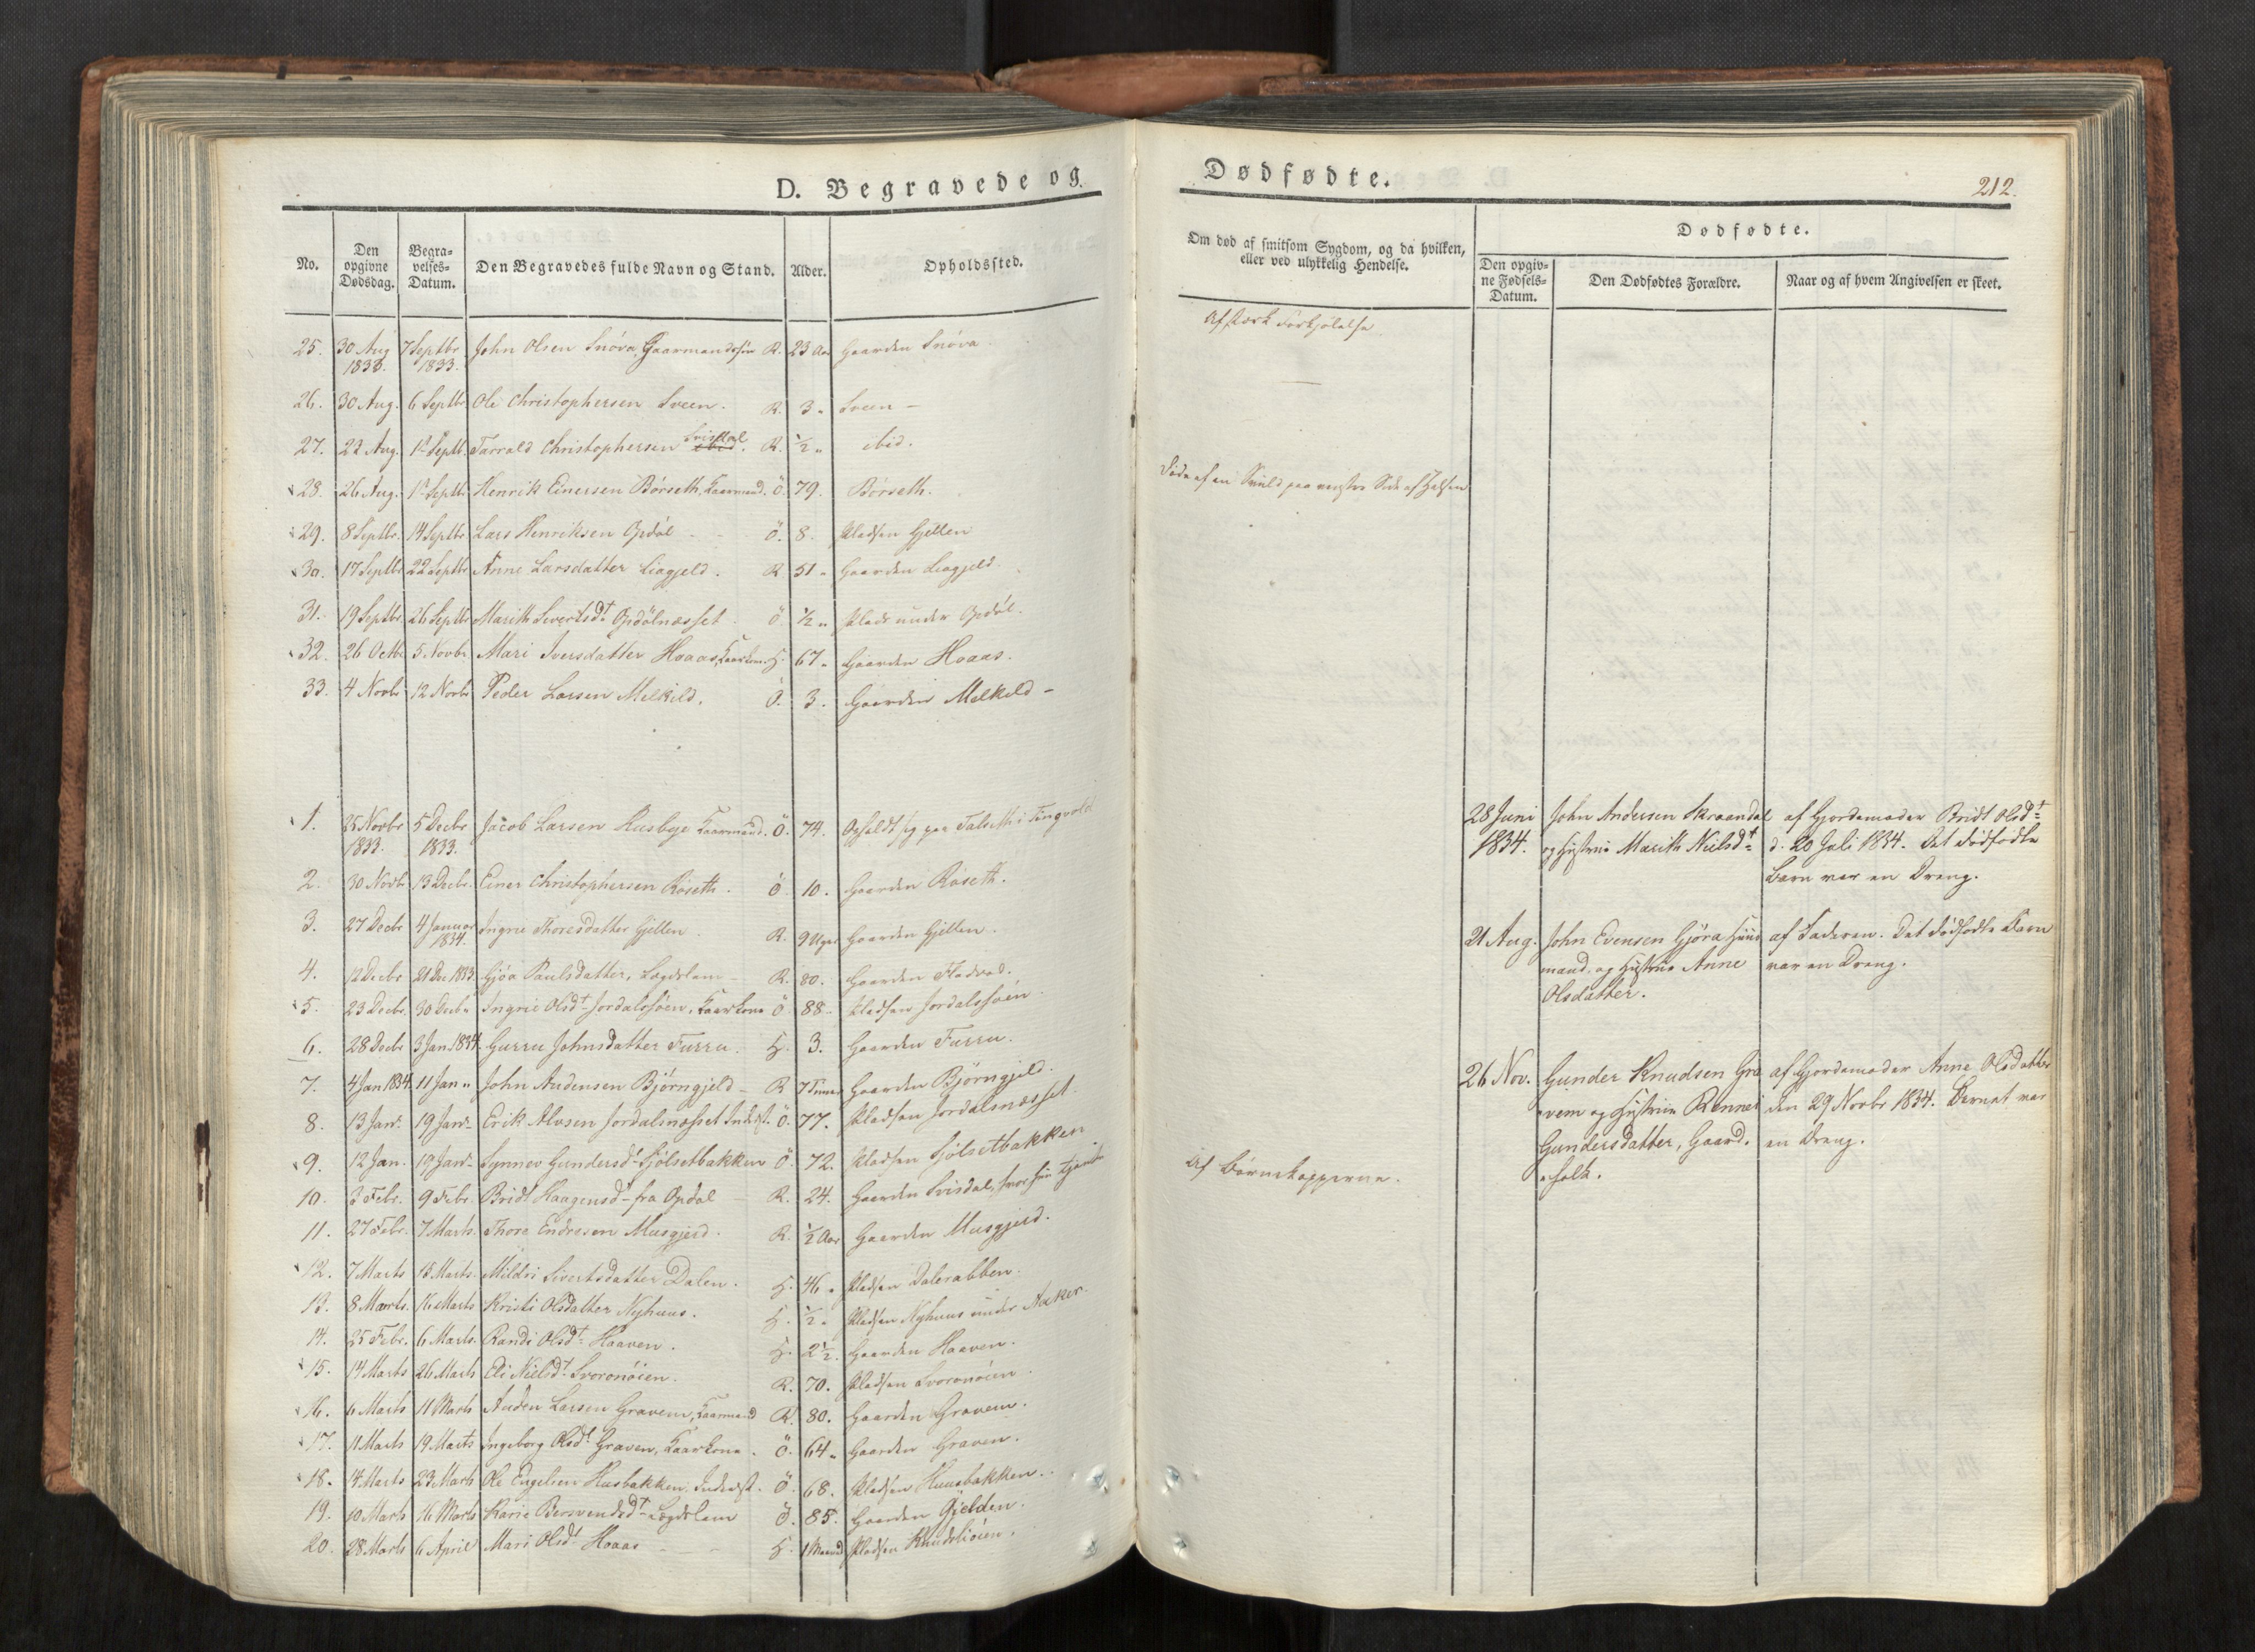 D. Begravede og
No.
Den opgivne Dødsdag.
Begra-velses-Datum.
Den Begravedes fulde Navn og Stand.
Alder.
Opholdssted.
25. 30 Aug 1833. 7 Septbr 1833. John Olsen Snöva, Gaarmandssön R. 23 Aar Gaarden Snöva
26. 30 Aug. 6 Septbr Ole Christophersen Sveen. R. 3 " Sveen –
27. 22 Aug. 1 Septb. Tarrald Christophersen Svisdal R. 1/2 " ibid.
28. 26 Aug. 1 Septb. Henrik Einersen Börseth, Kaarmand. Ö. 79. Börseth.
29. 8 Septbr. 14 Septbr Lars Henriksen Opdöl - - Ö. 8. Pladsen Gjellen
30. 17 Septbr 22 Septbr Anne Larsdatter Liagjeld. R. 51 " Gaarden Liagjeld.
31. 19 Septbr. 26 Septbr Marith Sivertsdt. Opdölnæsset. Ö 1/2 " Plads under Opdöl.
32. 26 Octbr 5 Novbr Mari Iversdatter Hoaas, Kaarkone. H. 67 " Gaarden Hoaas.
33. 4 Novbr 12 Novbr Peder Larsen Melkild. Ö. 3. Gaarden Melkild –
1. 25 Novbr 1833. 5 Decbr 1833. Jacob Larsen Husbye Kaarmand. Ö. 74. Opholdt sig paa Talseth i Tingvold
2. 30 Novb. 13 Decbr. Einer Christophersen Röseth. Ö 10. Gaarden Röseth.
3. 27 Decbr 4 Januar 1834. Ingrie Thoresdatter Gjellen. R. 9 Uger Gaarden Gjellen.
4. 12 Decbr 21 Dec 1833 Gjöa Paulsdatter, Lægdslem – R. 80. Gaarden Fladvad.
5. 23 Decbr. 30 Decb " Ingrie Olsdt. Jordalsöien, Kaarkone Ö 88 " Pladsen Jordalsöien
6. 28 Decbr 3 Jan. 1834. Gurru Johnsdatter Furru. H. 3. Gaarden Furru.
7. 4 Jan 1834. 11 Jan " John Andersen Björngjeld – R 7 Timer Gaarden Björngjeld.
8. 13 Janr. 19 Janr. Erik Alvsen Jordalsnæsset Inderst. Ö. 77. Pladsen Jordalsnæsset.
9. 12 Jan. 19 Janr. Synnev Gundersdt. Sjölsetbakken Ö. 72. Pladsen Sjölsetbakken
10. 3 Febr. 9 Febr. Bridt Haagensdt. fra Opdal – R. 24. Gaarden Svisdal, hvor hun tjente
11. 27 Febr. 7 Marts. Thore Endresen Musgjerd. R. 1/2 Aar Gaarden Musgjerd.
12. 7 Marts 13 Marts. Mildri Sivertsdatter Dalen. H. 46 " Pladsen Dalerabben.
13. 8 Marts. 16 Marts Kristi Olsdatter Nyhuus. H. 1/2 " Pladsen Nyhuus under Aaker.
14. 25 Febr. 6 Marts. Randi Olsdt. Haaven. H. 2 1/2. Gaarden Haaven.
15. 14 Marts 26 Marts Eli Nielsdt. Svoronöien. R. 70. Pladsen Svoronöien
16. 6 Marts 11 Marts Anden Larsen Gravem, Kaarmand R. 80. Gaarden Gravem.
17. 11 Marts 19 Marts Ingeborg Olsdt. Graven, Kaarkone. Ö. 64 " Gaarden Graven.
18. 14 Marts 23 Marts Ole Engelsen Husbakken. Inderst. Ö. 68. Pladsen Huusbakken.
19. 10 Marts 16 Marts Karie Bersvendsdt. Lægdslem Ö. 85. Gaarden Gjelden.
20. 28 Marts 6 April Mari Olsdt. Hoaas – – H. 1 Maaned Pladsen Knudsliöien.
Dødfødte.
212.
Om død af smitsom Sygdom, og da hvilken,
eller ved ulykkelig Hendelse.
Dødfødte.
Den opgiv-ne Fødsels-Datum.
Den Dødfødtes Forældre.
Naar og af hvem Angivelsen er skeet.
Af stærk Forkjölelse
Döde af en Svuld paa venstre Side af Halsen
28 Juni John Andersen Skraendal af Gjordemoder Bridt Olsdt.
1834. og Hustrue Marith Nielsdt. d. 20 Juli 1834. Det dödfödte
Barn var en Dreng.
21 Aug. John Evensen Gjöra Huus af Faderen. Det dödfödte Barn
mand. og Hustrue Anne var en Dreng.
Olsdatter.
26 Nov. Gunder Knudsen Gra af Gjordemoder Anne Olsdatter
vem og Hustrue Rennei den 29 Novbr 1834. Barnet var
Gundersdatter, Gaard. en Dreng.
folk.
Af Börnekopperne.